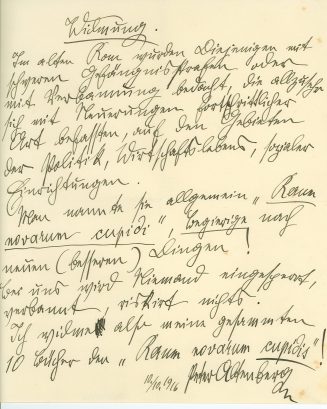 Widmung.
Im alten Rom wurden Diejenigen mit
schweren Gefängnisstrafen oder
mit Verbannung bedacht, die allzusehr
sich mit Neuerungen fortschrittlicher
Art befassten, auf den Gebieten
der Politik, Wirtschaftslebens, sozialer
Einrichtungen.
Man nannte sie allgemein „Rerum
novarum cupidi", begierige nach
neuen (besseren) Dingen!
Bei uns wird Niemand eingesperrt,
verbannt, riskirt nichts.
Ich widme also meine gesammten
10 Bücher den „Rerum novarum cupidis"!
1916 Peter Altenberg